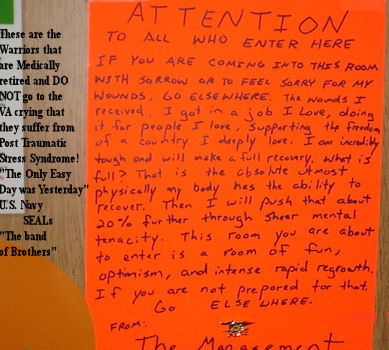 These are the
Warriors that
are Medically
retired and DO
NOT go to the
VA crying that
they suffer from
Post Traumatic
Stress Syndrome!
"The Only Easy
Day was Yesterday"
U.S. Navy
SEALs
"The band
of Brothers"
ATTENTION
TO ALL WHO ENTER HERE
IF YOU ARE COMING INTO THIS ROOM
WITH SORROW OR TO FEEL SORRY FOR MY
WOUNDS, GO ELSEWHERE. The WOUNDS I
received, I got in a job I Love, doing
it for people I love, supporting the freedom
of a country I deeply love. I am incredibly
tough and will make a full recovery. What is
full? That is the absolute utmost
physically my body has the ability to
recover. Then I will push that about
20% further through sheer mental
tenacity. This room you are about
to enter is a room of fun,
optimism, and intense rapid regrowth.
If you are not prepared for that.
GO ELSEWHERE.
FROM:
The Management